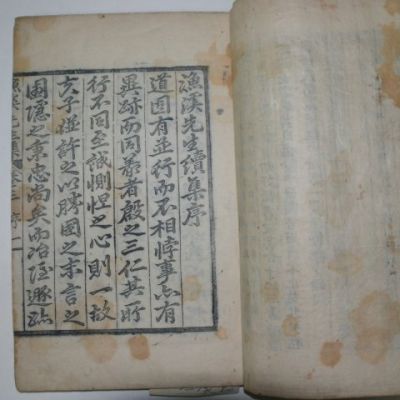 漁溪先生續集序
道固有並行而不相悖事亦有
異跡而同義者殷之三仁其所
行不同至誠惻怛之心則一故
夫子並許之以勝國之末言之
圃隱之秉忠尚矣而冶隱遯跡